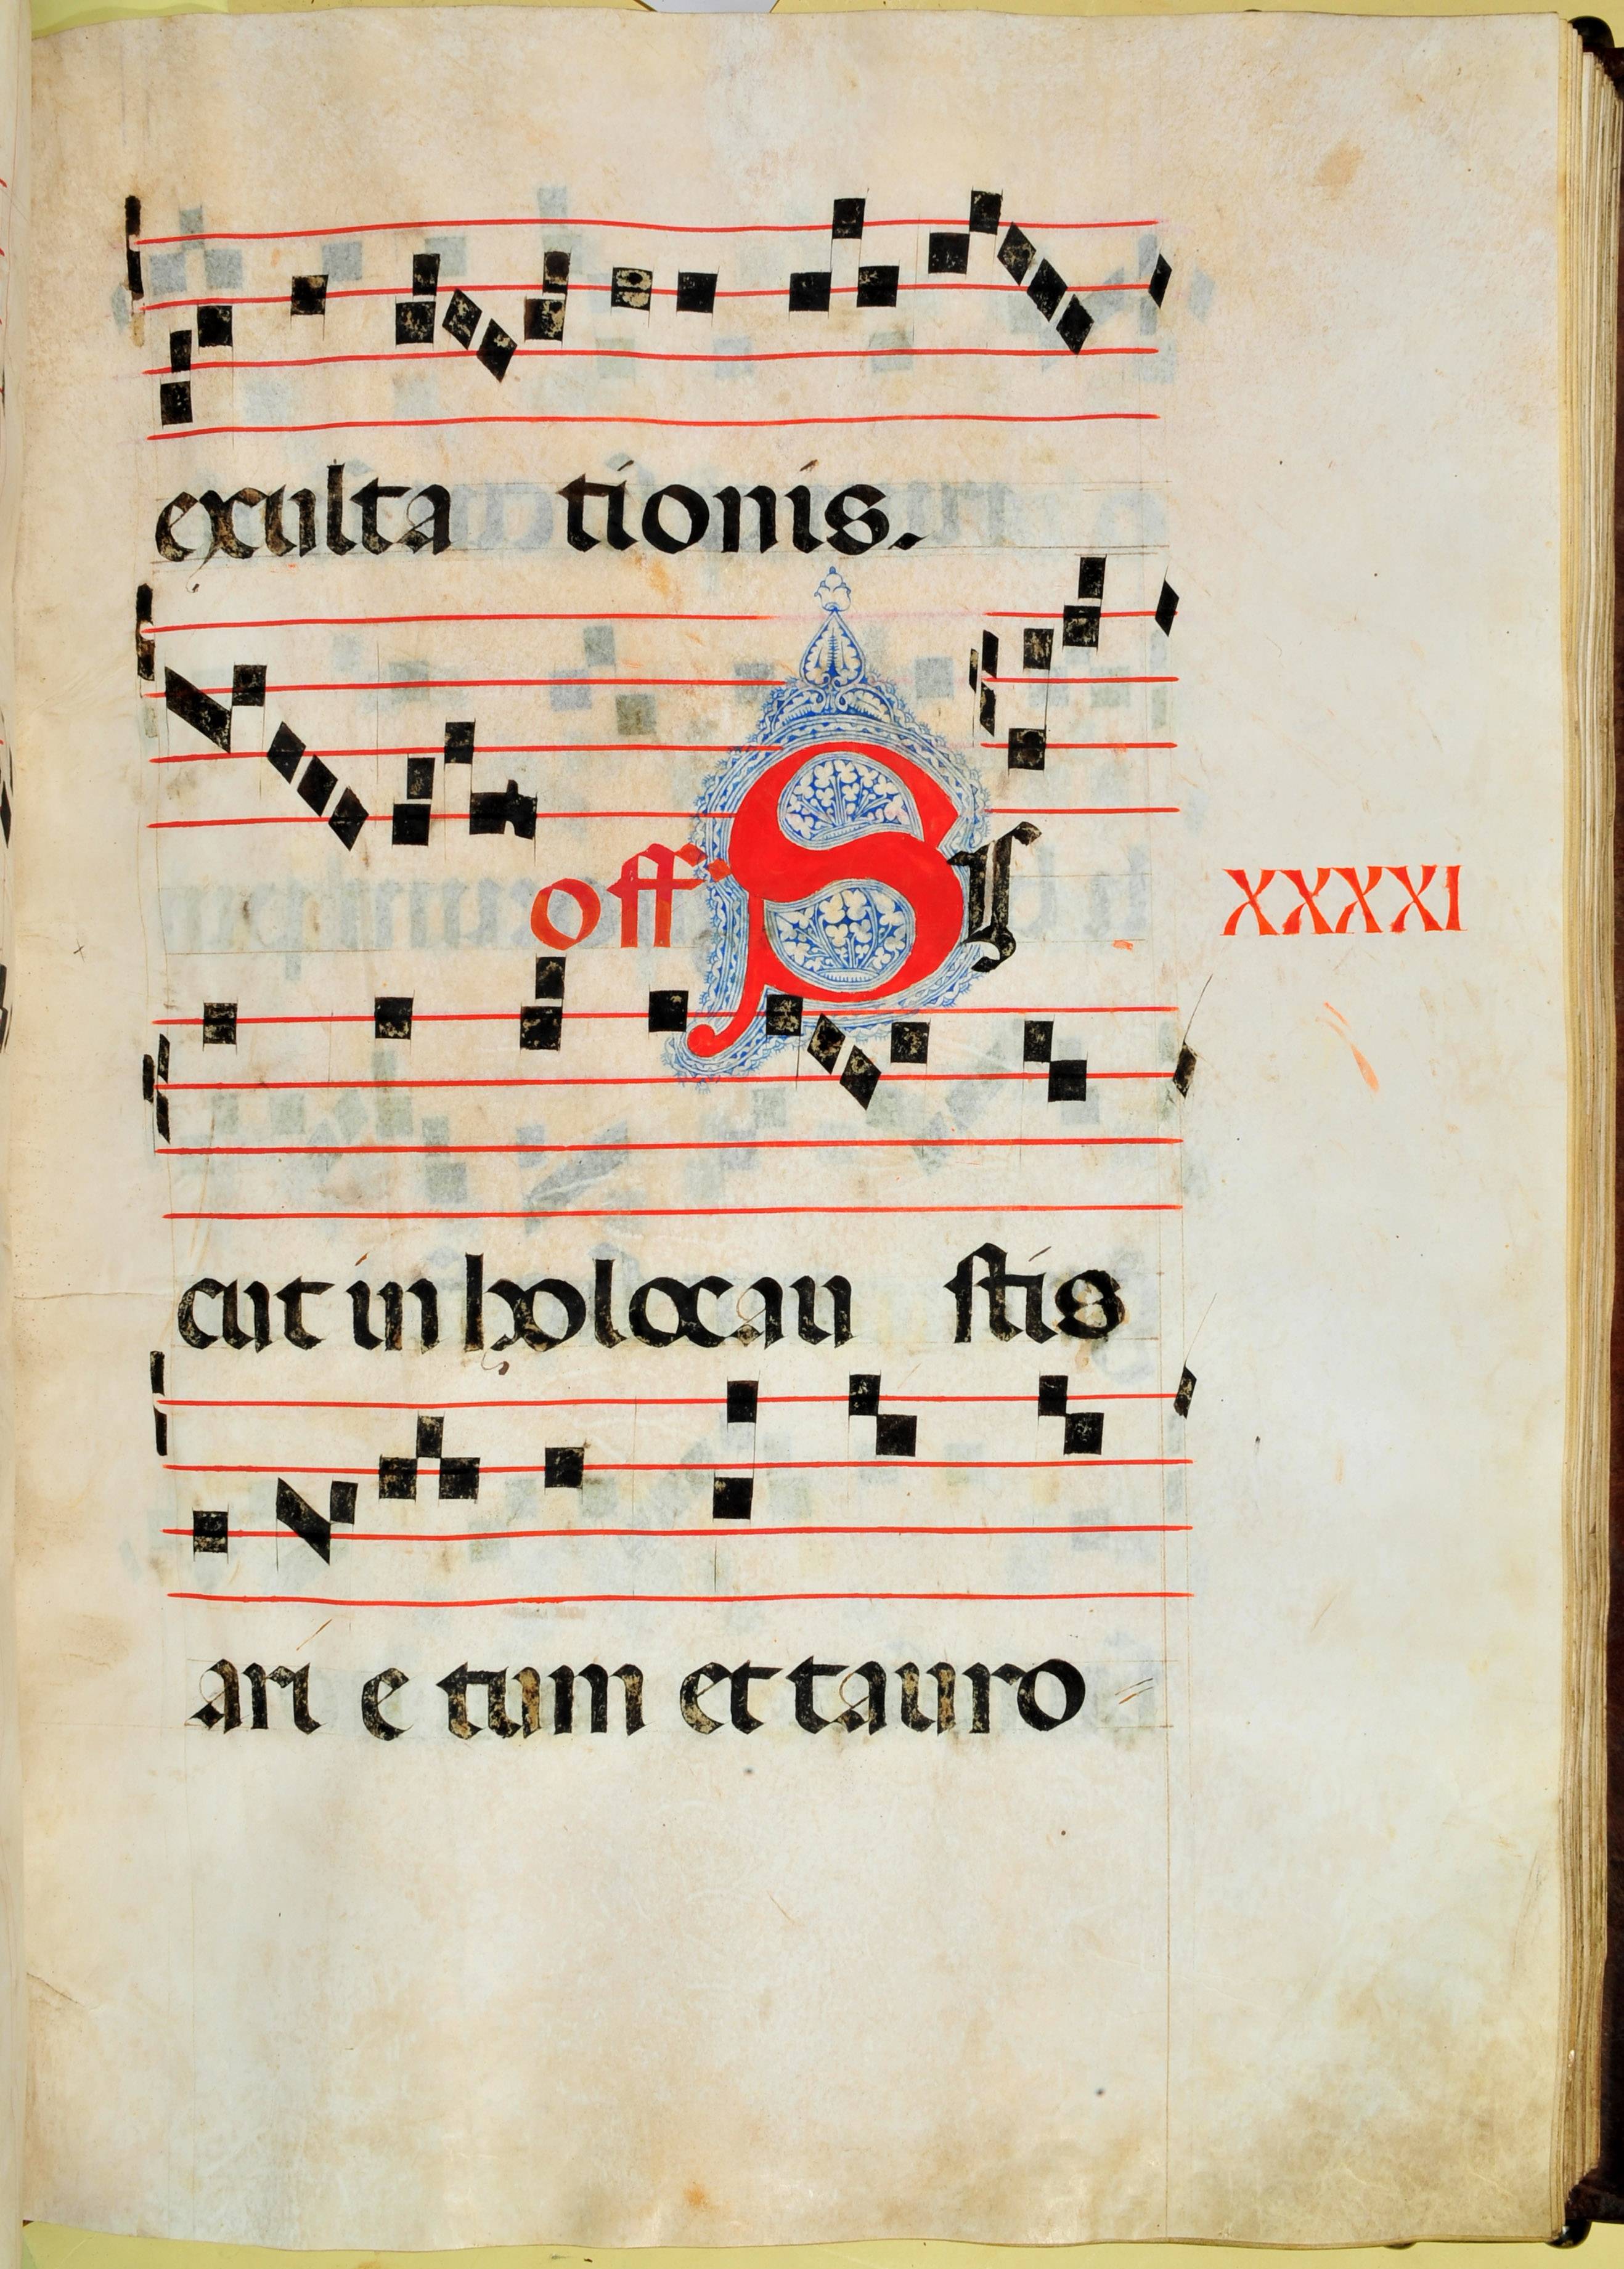 exulta tionis.
off SI
XXXXI
cut in holocau stis
ari e tum et tauro